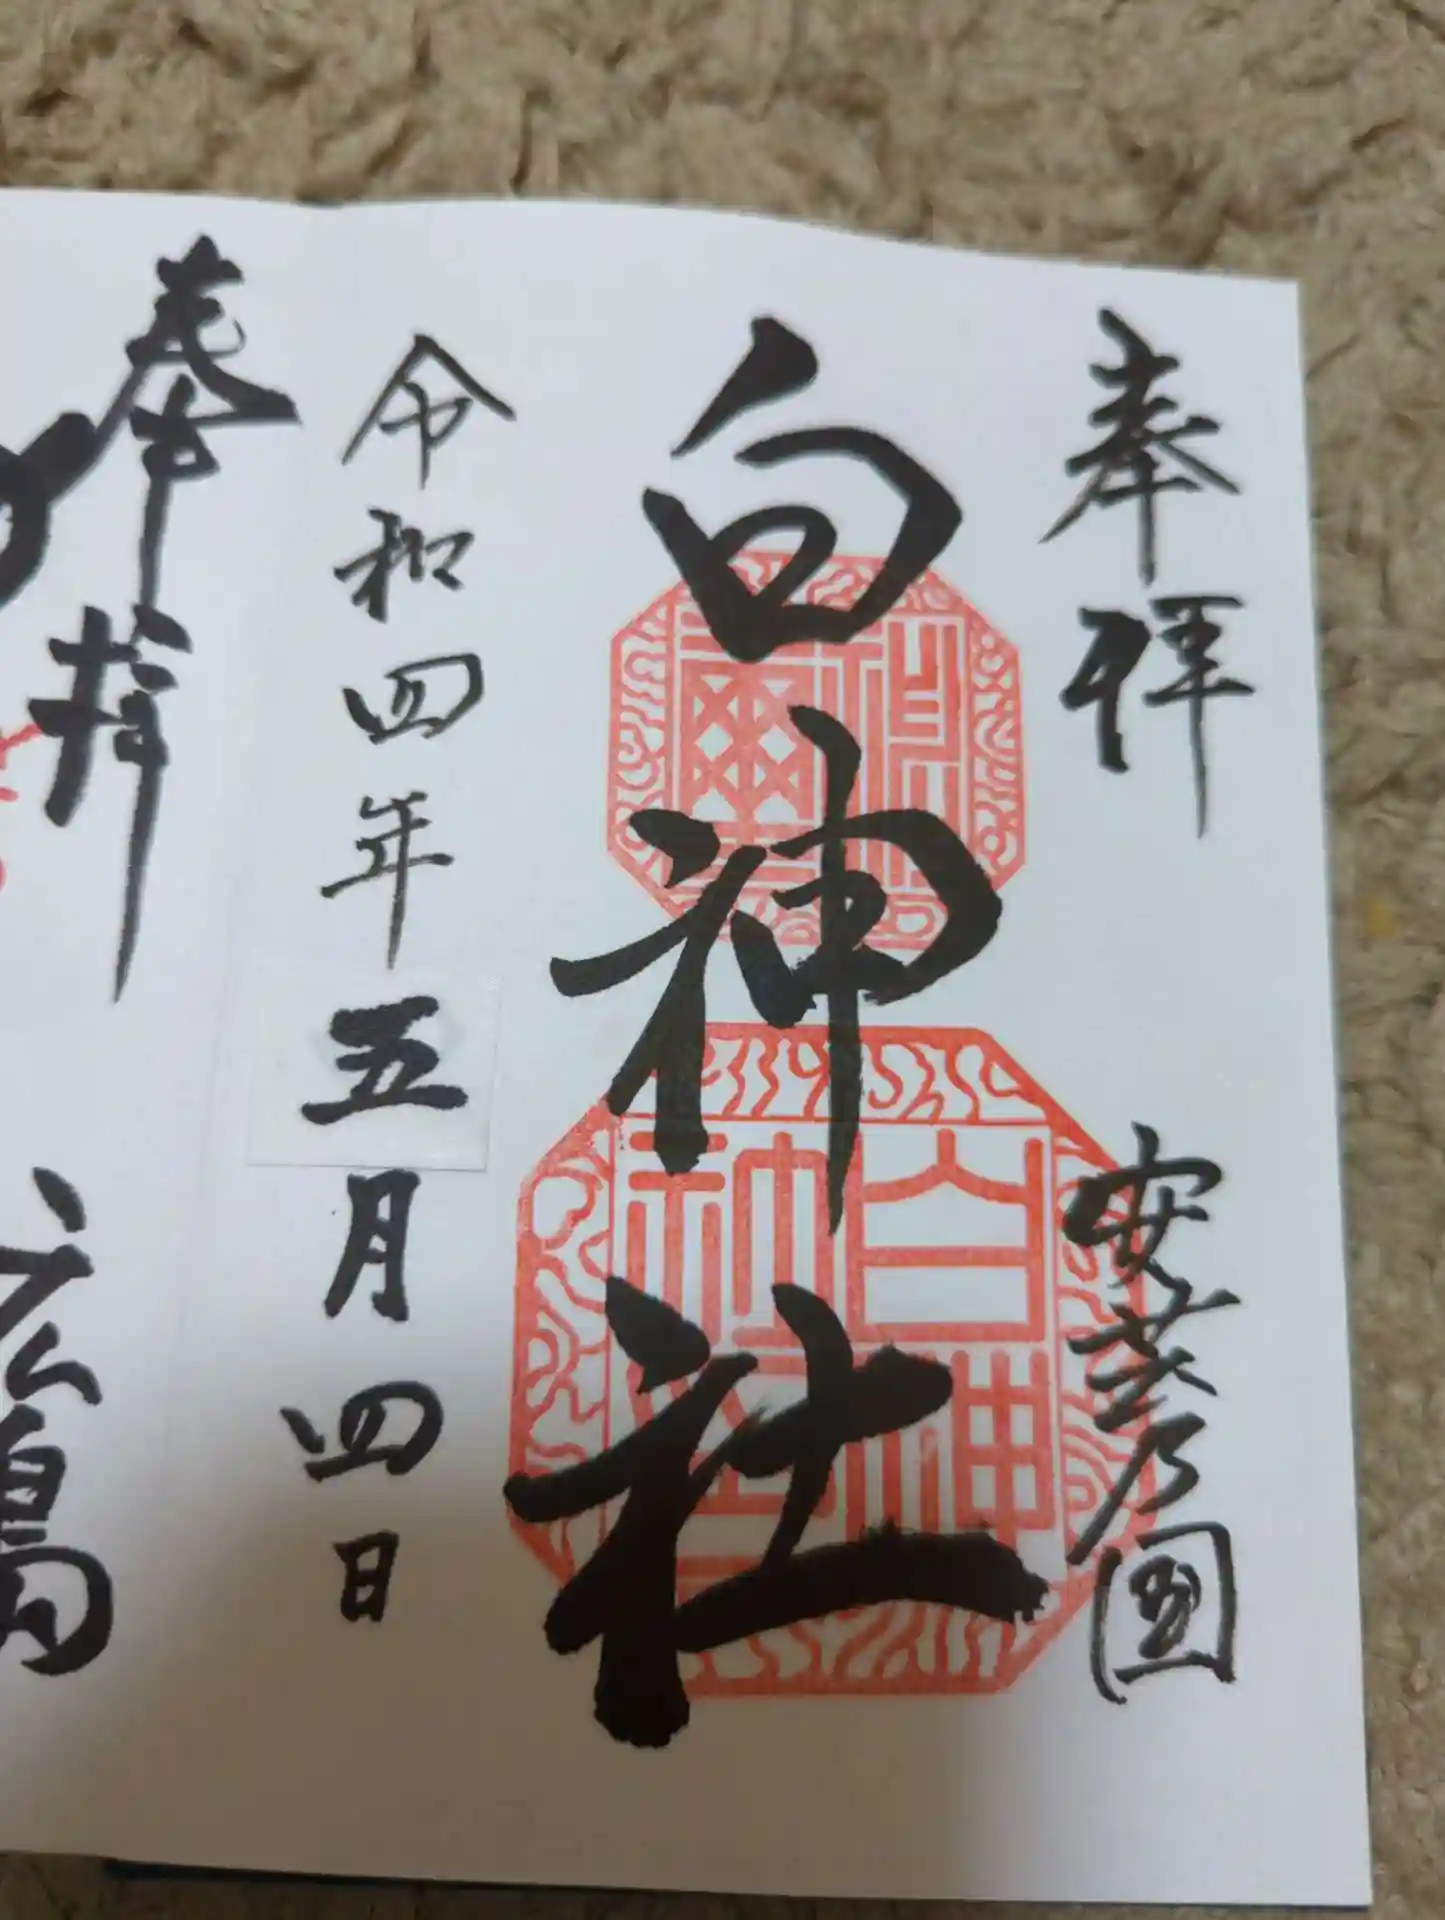 奉拝
安芸乃国
白神社
白神社印
令和四年五月四日
奉拝
広島